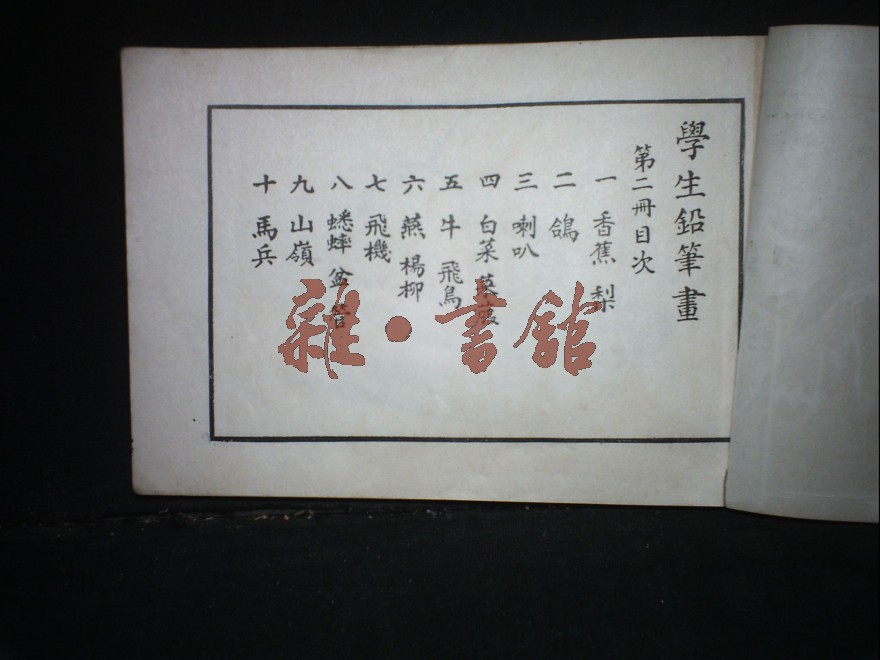 學生鉛筆畫
第二冊目次
一 香蕉 梨
二 鴿
三 喇叭
四 白菜 菜菔
五 牛 飛鳥
六 燕 楊柳
七 飛機
八 蟋蟀 盆 管
九 山嶺
十 馬兵
雜·書館